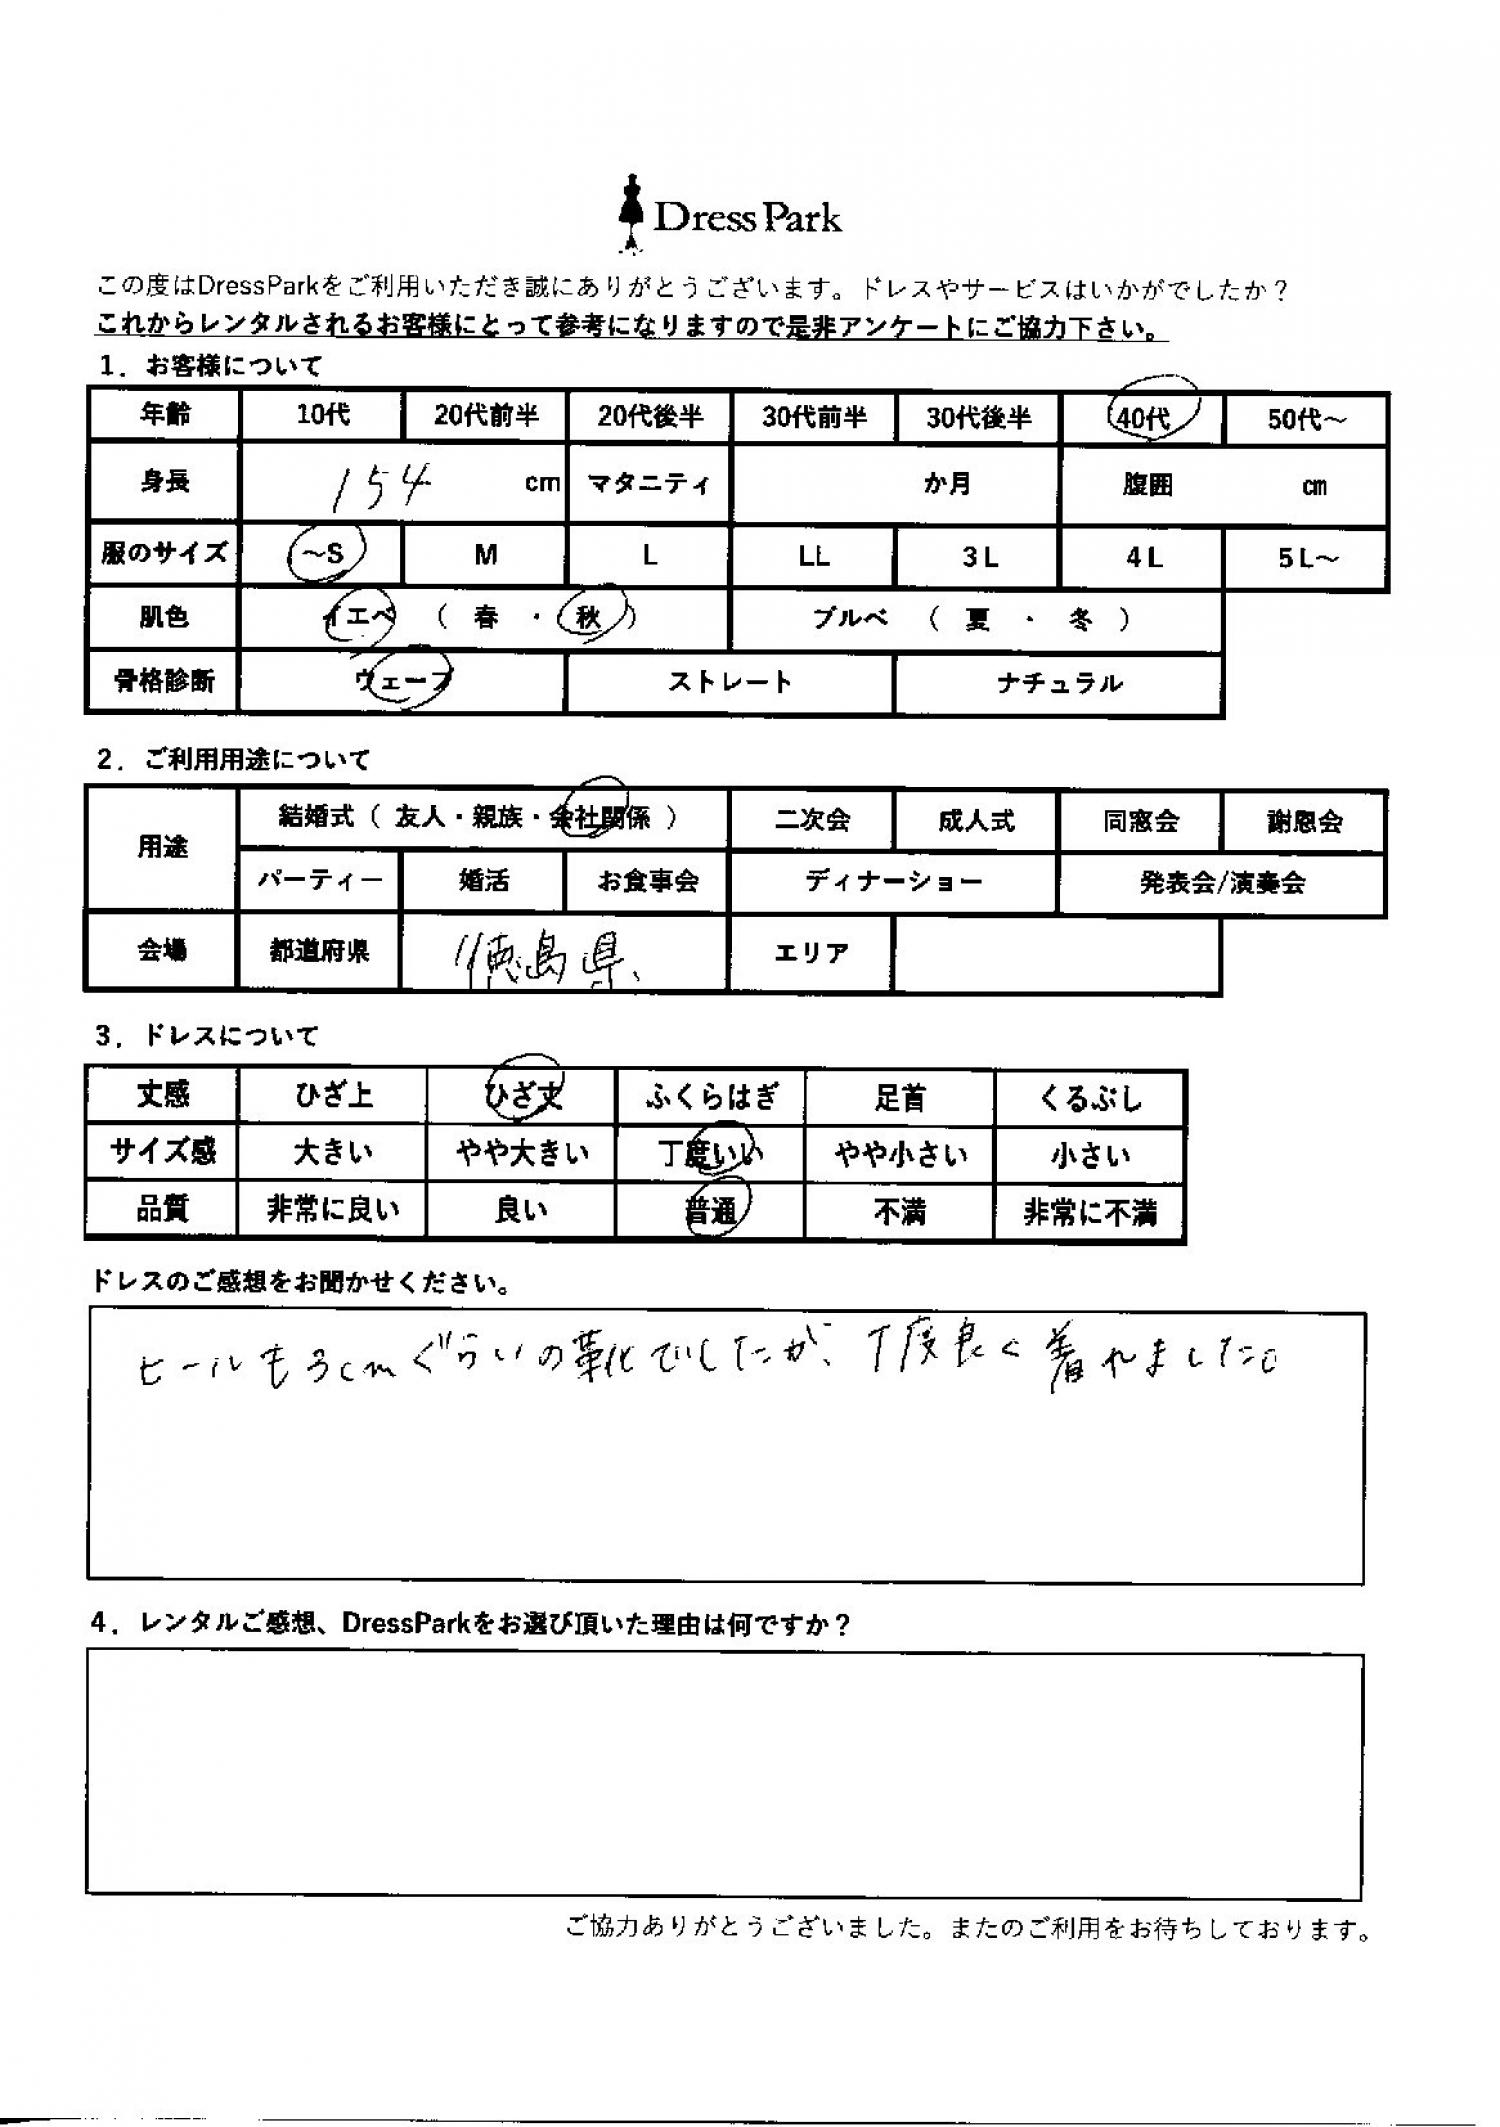 Dress Park
この度はDressParkをご利用いただき誠にありがとうございます。ドレスやサービスはいかがでしたか？
これからレンタルされるお客様にとって参考になりますので是非アンケートにご協力下さい。
1．お客様について
年齢 10代 20代前半 20代後半 30代前半 30代後半 40代 50代～
身長 154 cm マタニティ か月 腹囲 cm
服のサイズ ～S M L LL 3L 4L 5L～
肌色 イエベ （ 春 ・ 秋 ） ブルベ （ 夏 ・ 冬 ）
骨格診断 ウェーブ ストレート ナチュラル
2．ご利用用途について
用途 結婚式（ 友人・親族・会社関係 ） 二次会 成人式 同窓会 謝恩会
パーティー 婚活 お食事会 ディナーショー 発表会/演奏会
会場 都道府県 徳島県、 エリア
3．ドレスについて
丈感 ひざ上 ひざ丈 ふくらはぎ 足首 くるぶし
サイズ感 大きい やや大きい 丁度いい やや小さい 小さい
品質 非常に良い 良い 普通 不満 非常に不満
ドレスのご感想をお聞かせください。
ヒールも3cmぐらいの靴でしたが、丁度良く着れました。
4．レンタルご感想、DressParkをお選び頂いた理由は何ですか？
ご協力ありがとうございました。またのご利用をお待ちしております。